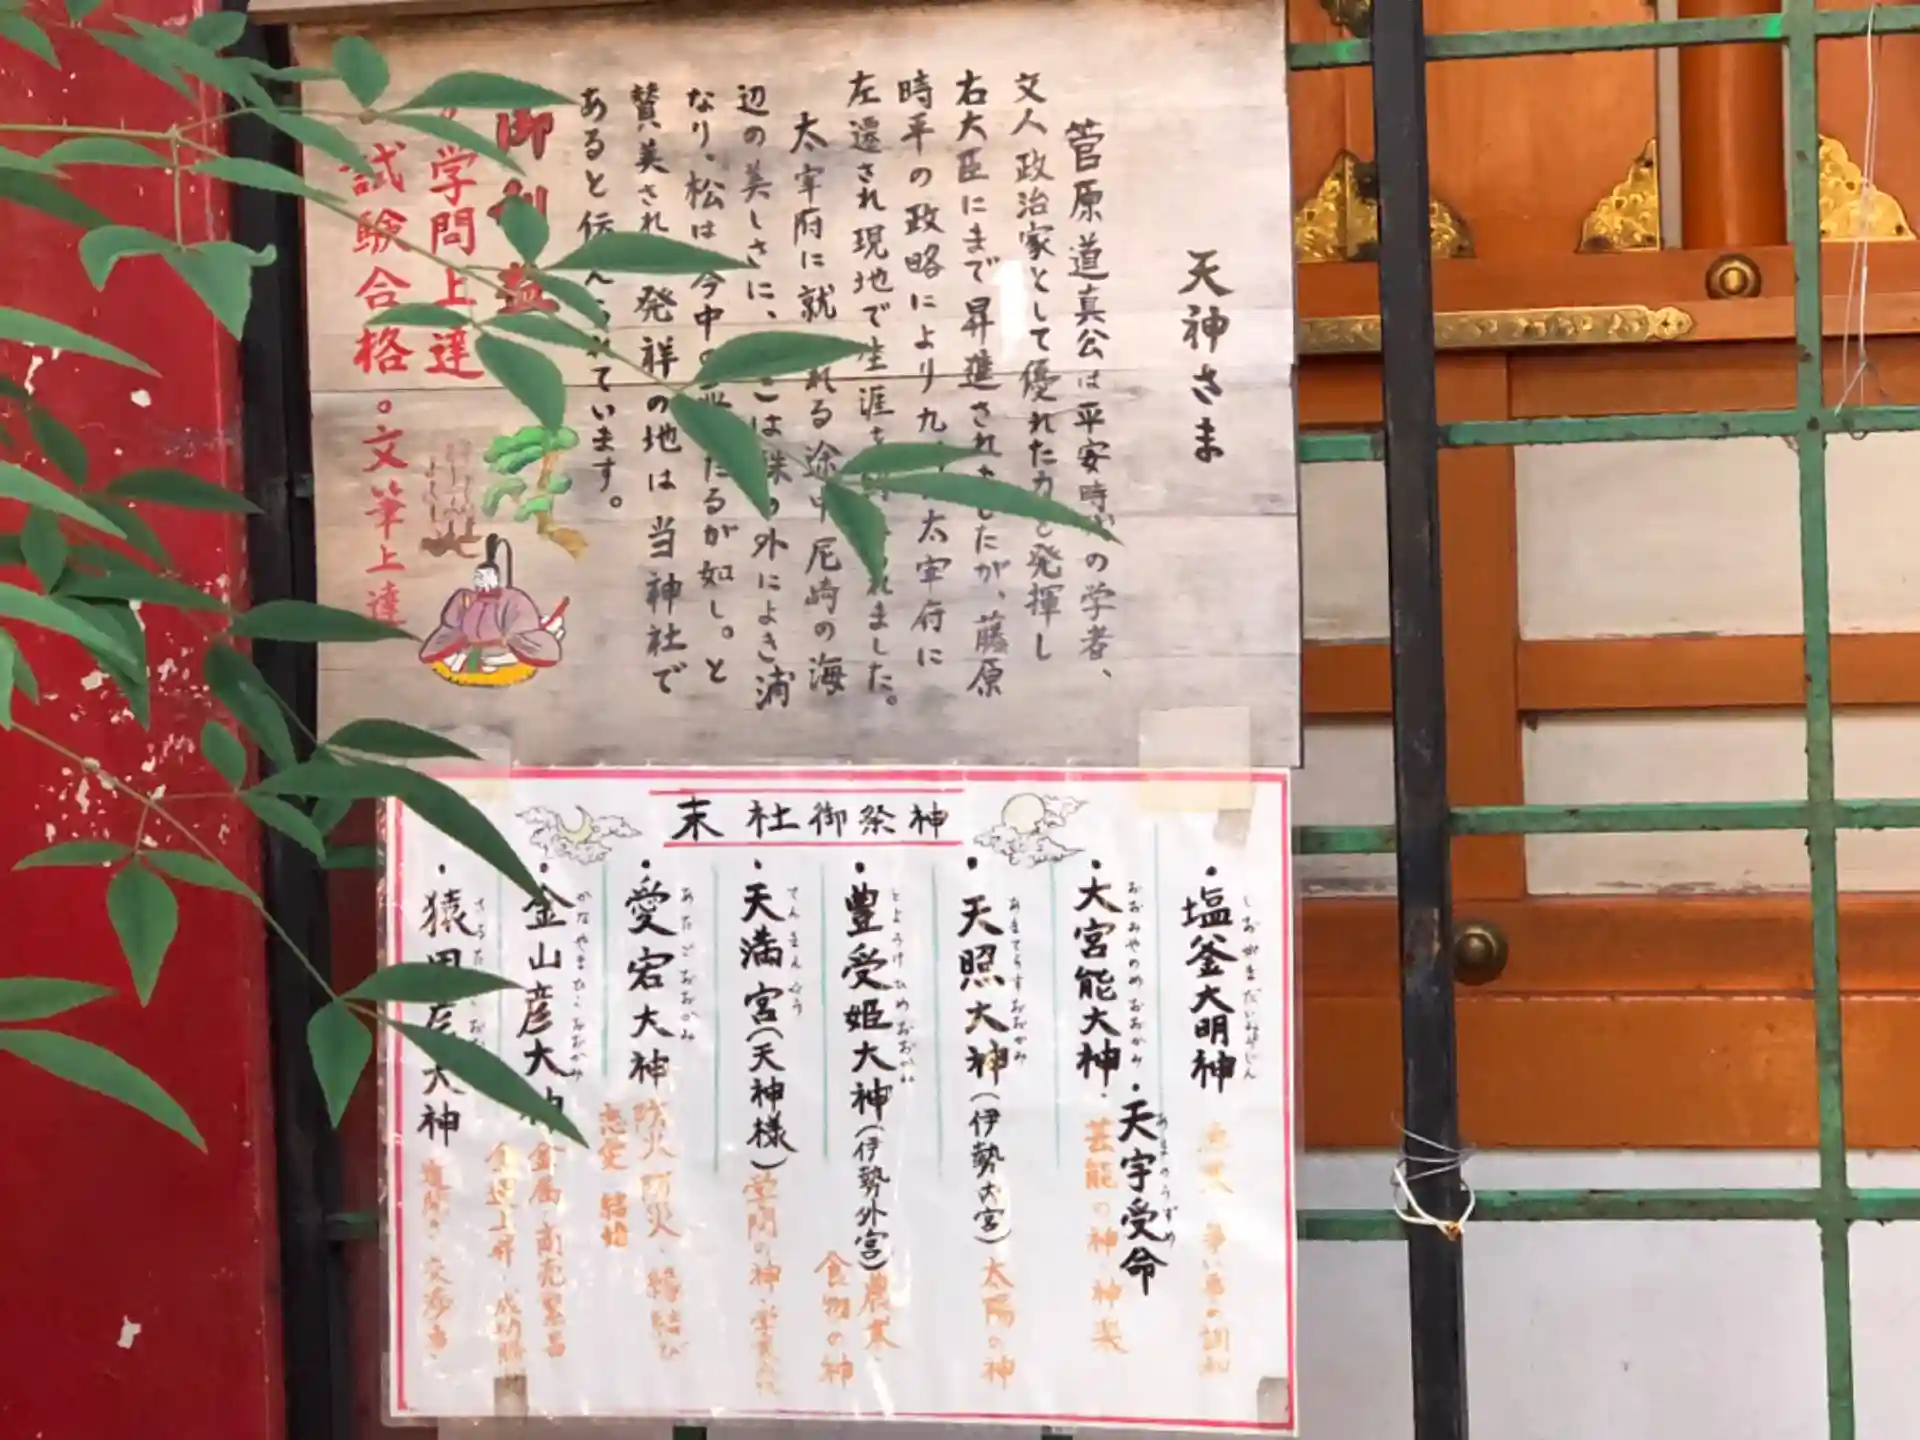 天神さま
菅原道真公は平安時の学者、
文人政治家として優れた力を発揮し
右大臣にまで昇進されましたが、藤原
時平の政略により九 太宰府に
左遷され現地で生涯を れました。
太宰府に就 れる途中尼崎の海
辺の美しさに、 は の外によき浦
なり、松は今中 たるが如し。と
賛美され 発祥の地は当神社で
あると伝 れています。
御利益
学問上達
試験合格。文筆上達
末社御祭神
・塩釜大明神 しおがまだいみょうじん
の調和
・大宮能大神 おおみやのめおおかみ
・天宇受命 あまのうずめ
芸能の神・神楽
・天照大神(伊勢内宮) あまてらすおおかみ
太陽の神
・豊受姫大神(伊勢外宮) とようけひめおおかみ
農業・
食物の神
・天満宮(天神様) てんまんぐう
学問の神・学業
・愛宕大神 あたごおおかみ
防火 防災・縁結び
恋愛 結婚
・金山彦大神 かなやまひこおおかみ
金属・商売繁昌
金運上昇・成功勝
・猿田彦大神
道開き・交渉事・